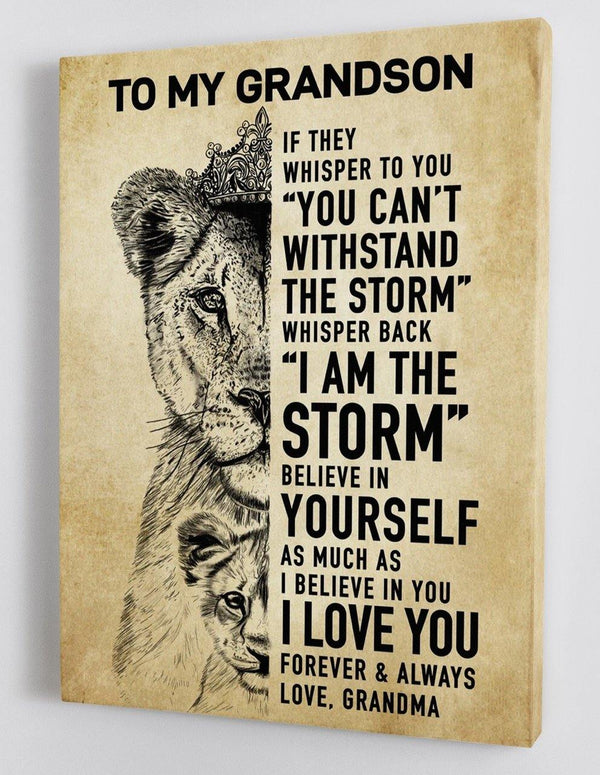 TO MY GRANDSON
IF THEY
WHISPER TO YOU
“YOU CAN’T
WITHSTAND
THE STORM”
WHISPER BACK
“I AM THE
STORM”
BELIEVE IN
YOURSELF
AS MUCH AS
I BELIEVE IN YOU
I LOVE YOU
FOREVER & ALWAYS
LOVE, GRANDMA